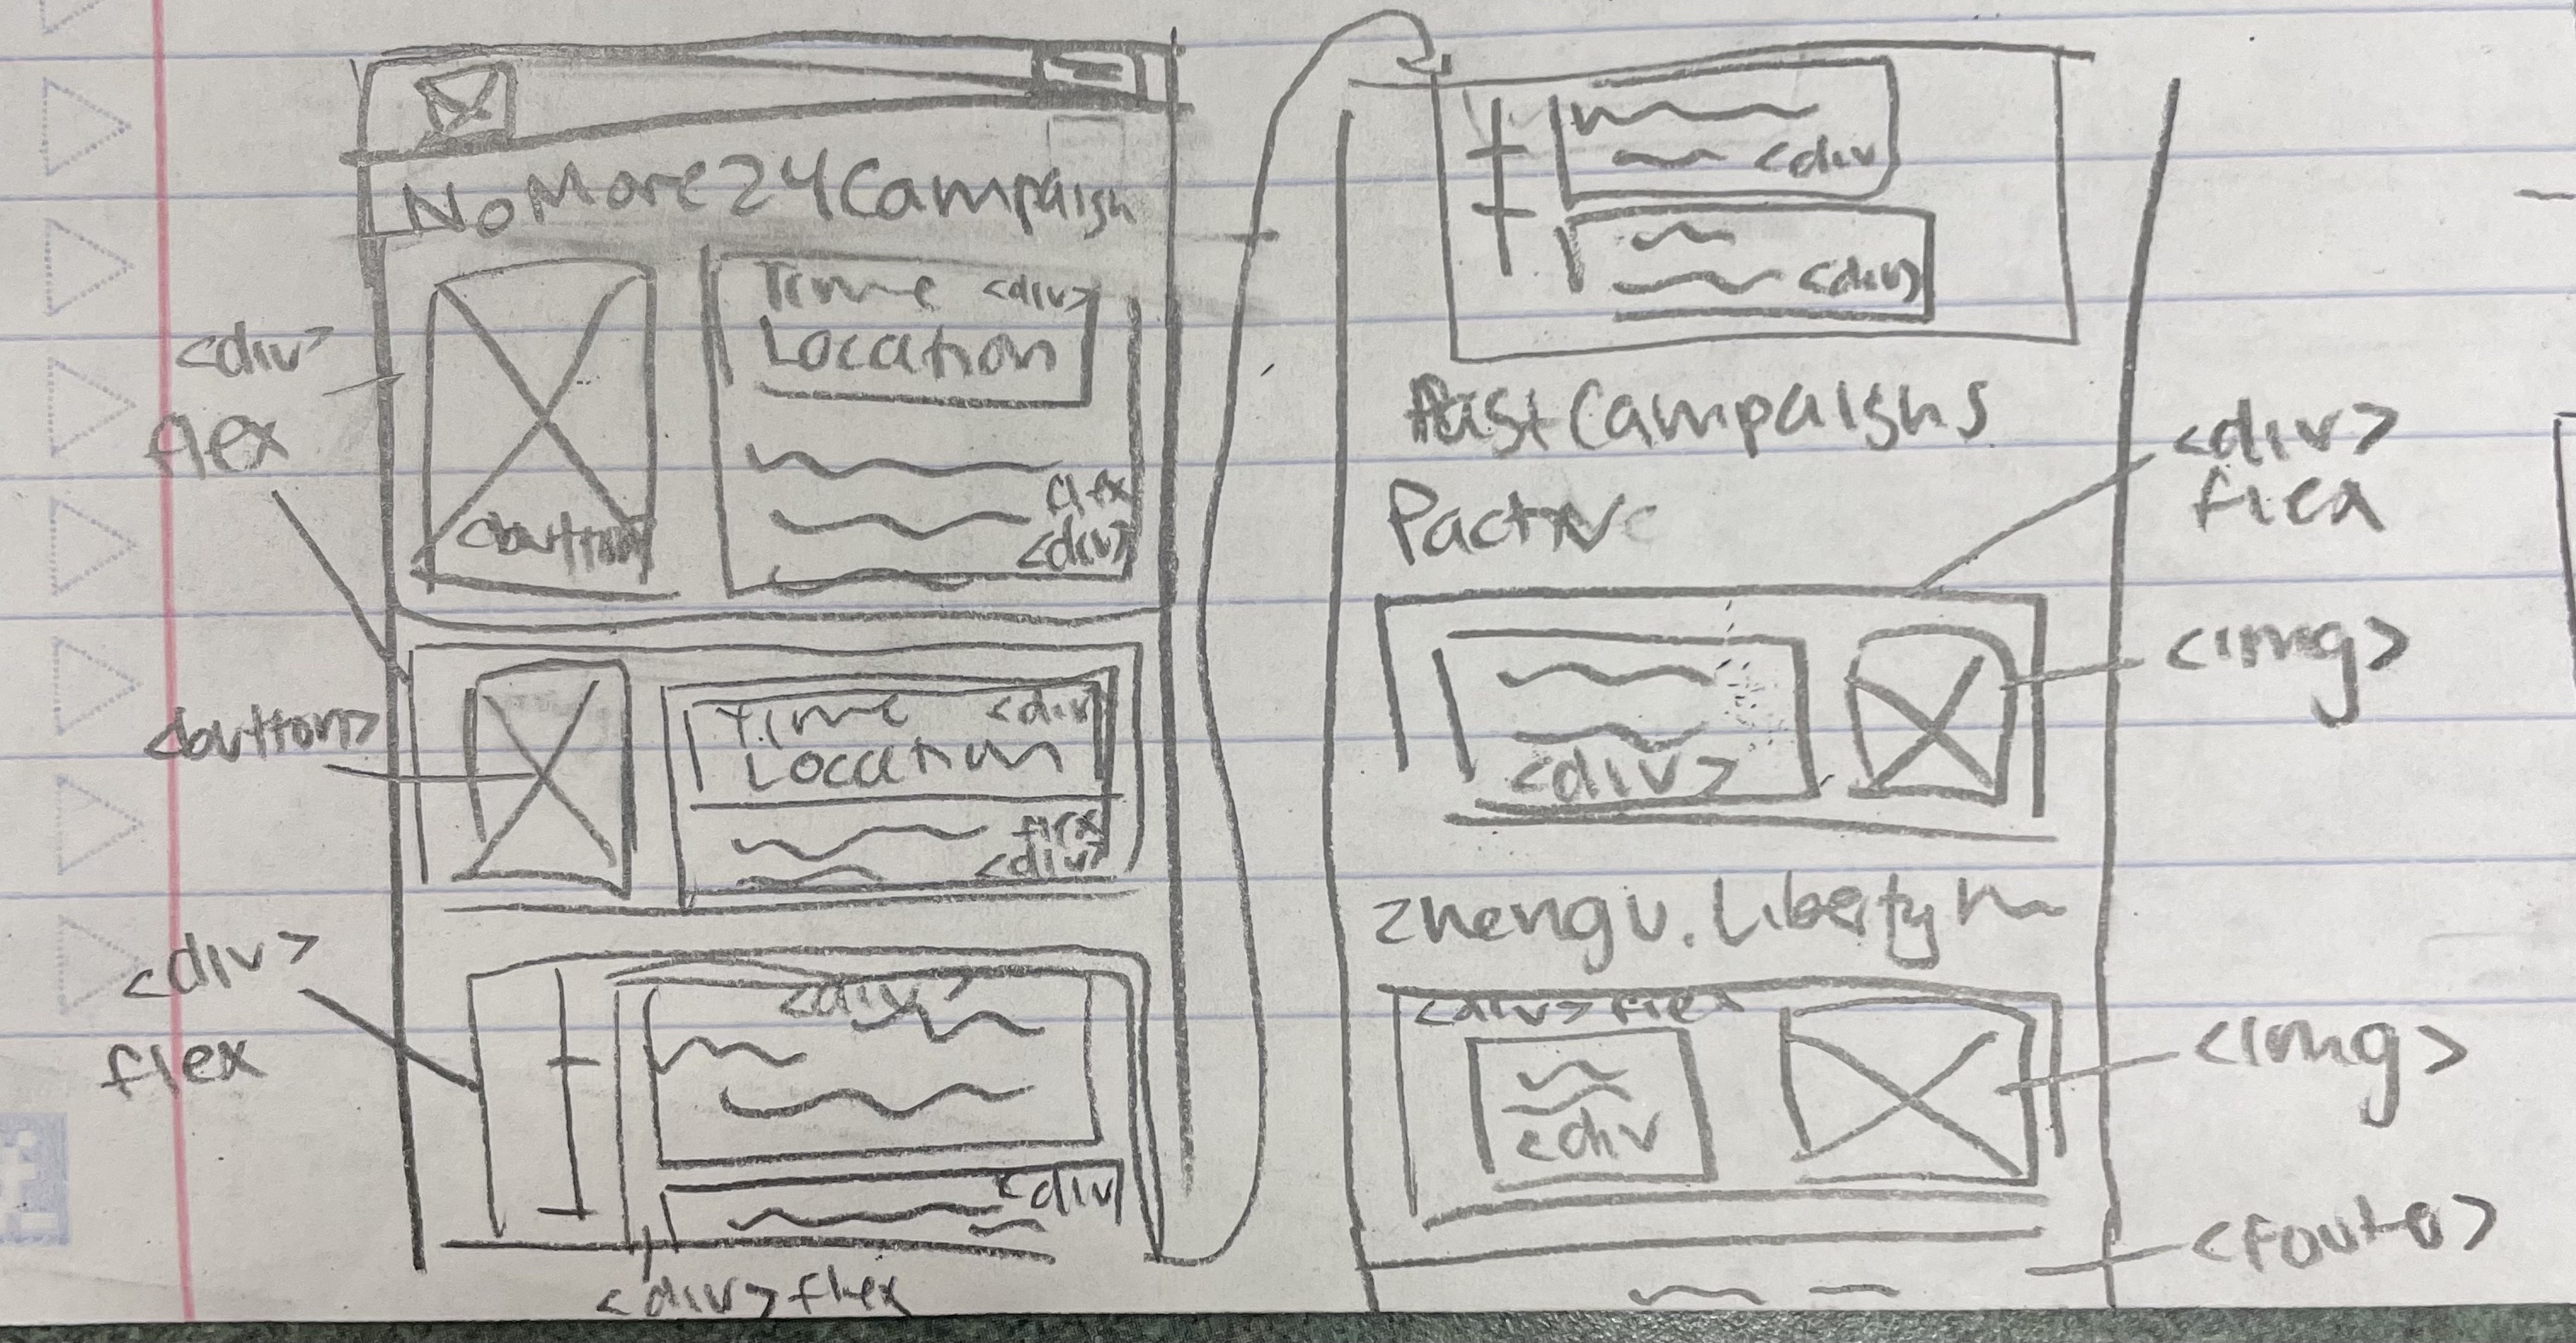 NoMore24Campaign
<div>
flex
Time <div>
Location
<button>
flex
<div>
<button>
Time <div
Location
flex
<div>
<div>
flex
<div>
<div
<div> flex
<div
<div>
Past Campaigns
<div>
flex
<img>
<div>
zhengv. Liberty
<div> flex
<div
<img>